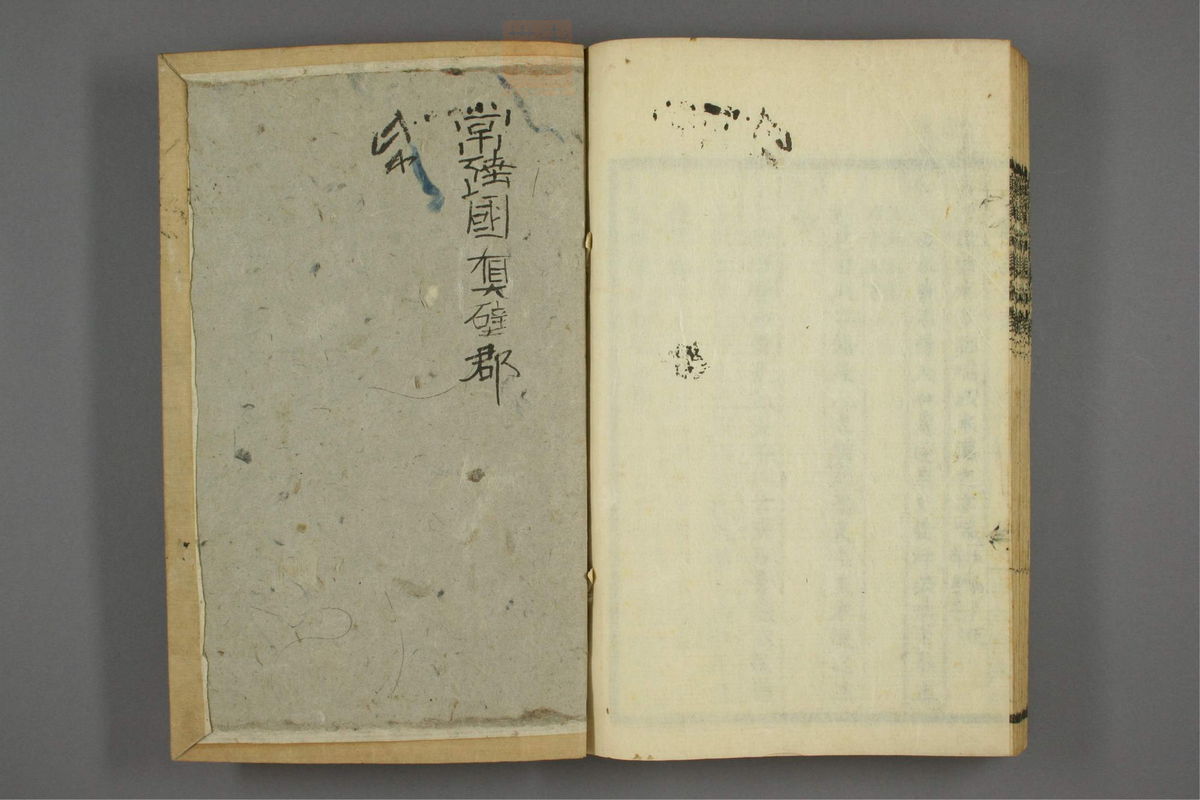 常陸國真壁郡